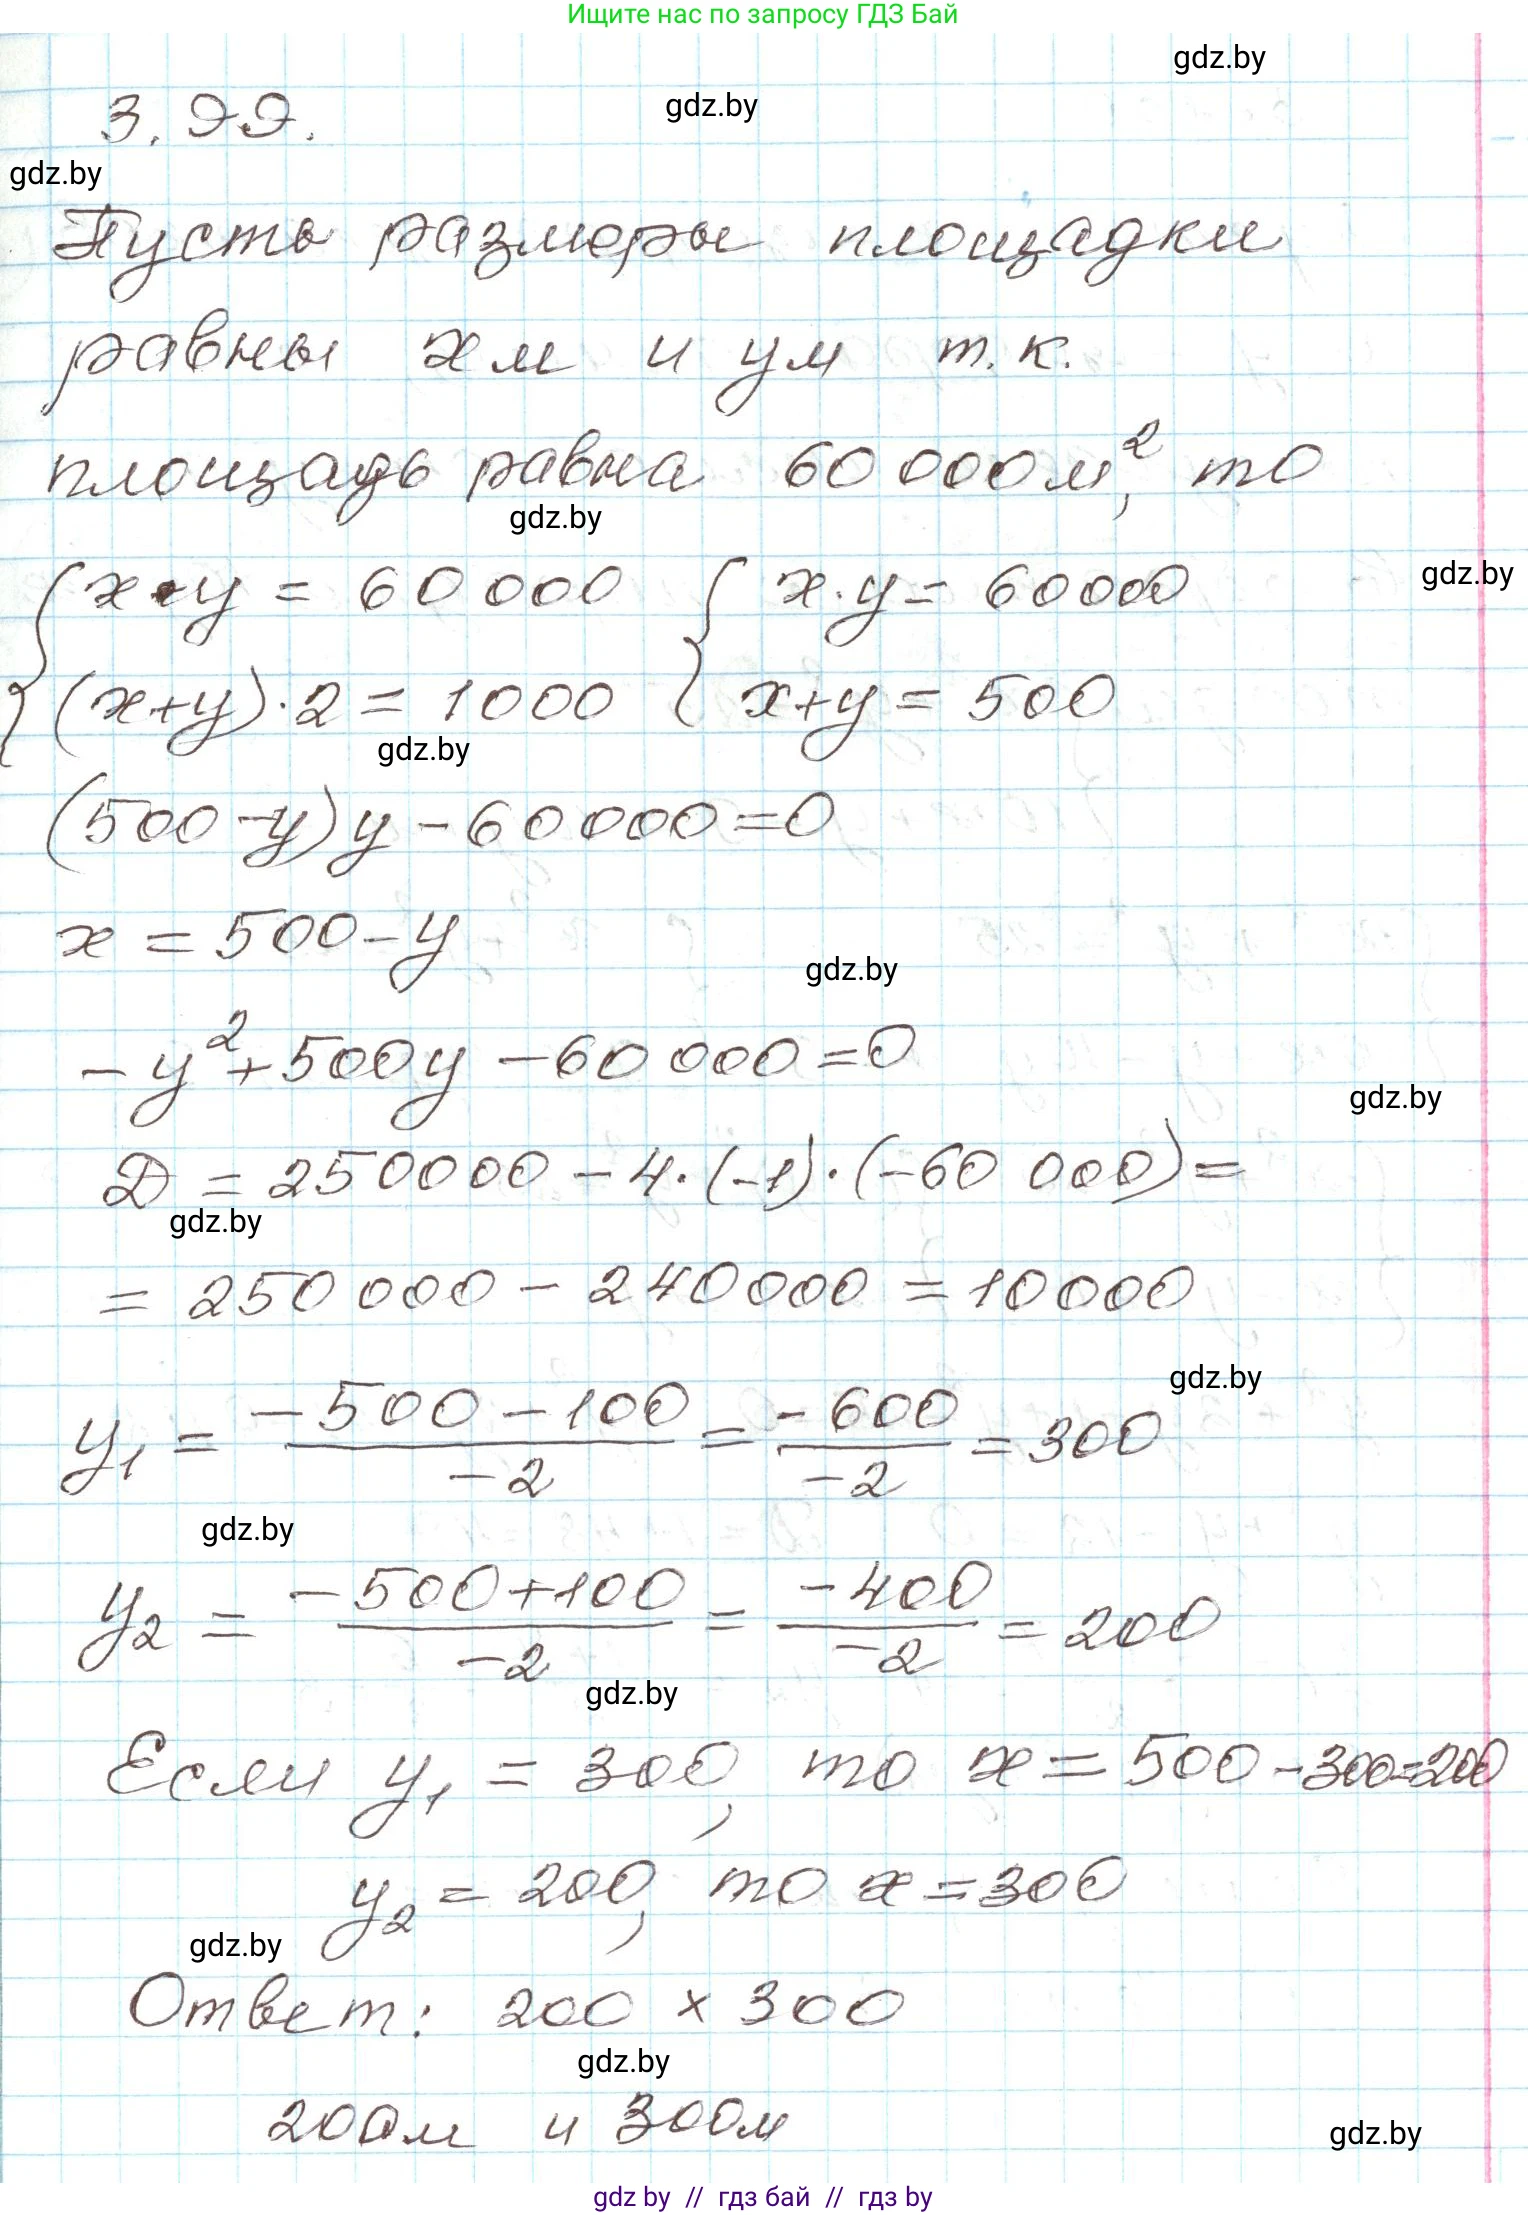 Ищите нас по запросу ГДЗ Бай
gdz.by
gdz.by
3.99.
gdz.by
Пусть размеры площадки
равны x м и y м т.к.
площадь равна 60 000 м², то
gdz.by
{ x·y = 60 000 { x·y = 60000
gdz.by
(x+y)·2 = 1000 x+y = 500
gdz.by
(500-y)y - 60000 = 0
x = 500 - y
gdz.by
-y² + 500y - 60 000 = 0
gdz.by
D = 250000 - 4·(-1)·(-60 000) =
gdz.by
= 250 000 - 240000 = 10000
gdz.by
y₁ = (-500 - 100)/(-2) = (-600)/(-2) = 300
gdz.by
y₂ = (-500+100)/(-2) = (-400)/(-2) = 200
gdz.by
Если y₁ = 300, то x = 500 - 300 = 200
y₂ = 200, то x = 300
gdz.by
Ответ: 200 x 300
gdz.by
200м и 300м
gdz.by
gdz by // гдз бай // гдз by